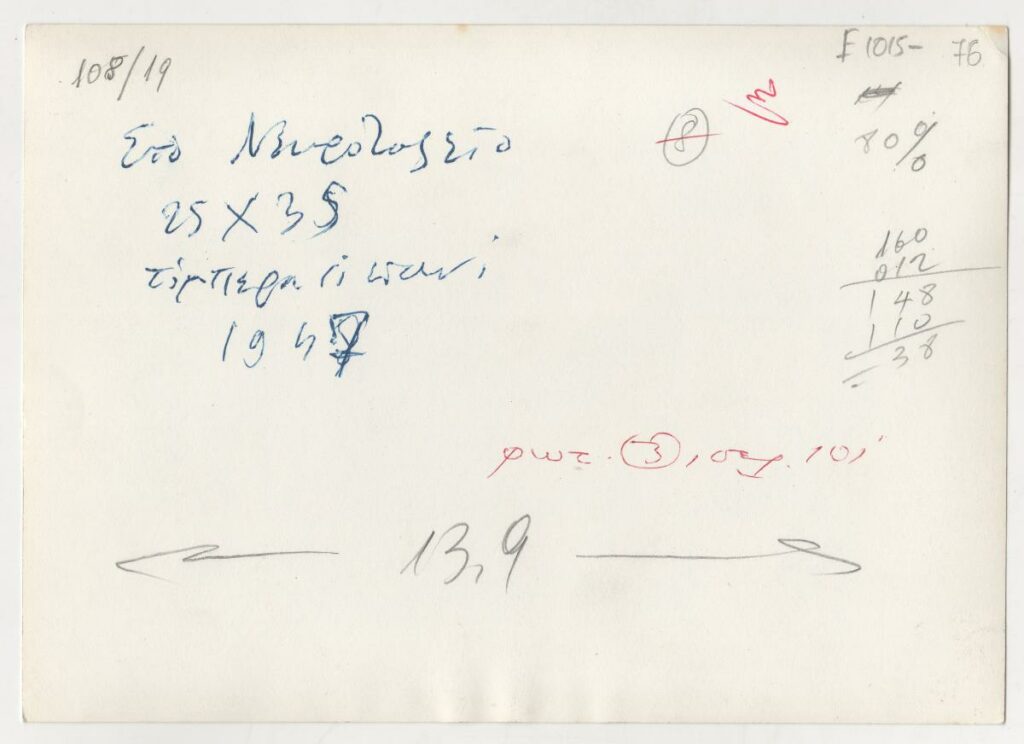 108/19
E 1015- 76
80%
8
Στο Νευροταξείο
25 X 35
τέμπερα σέ πανί
1947
160
012
148
110
38
φωτ. 3, σελ. 101
13,9